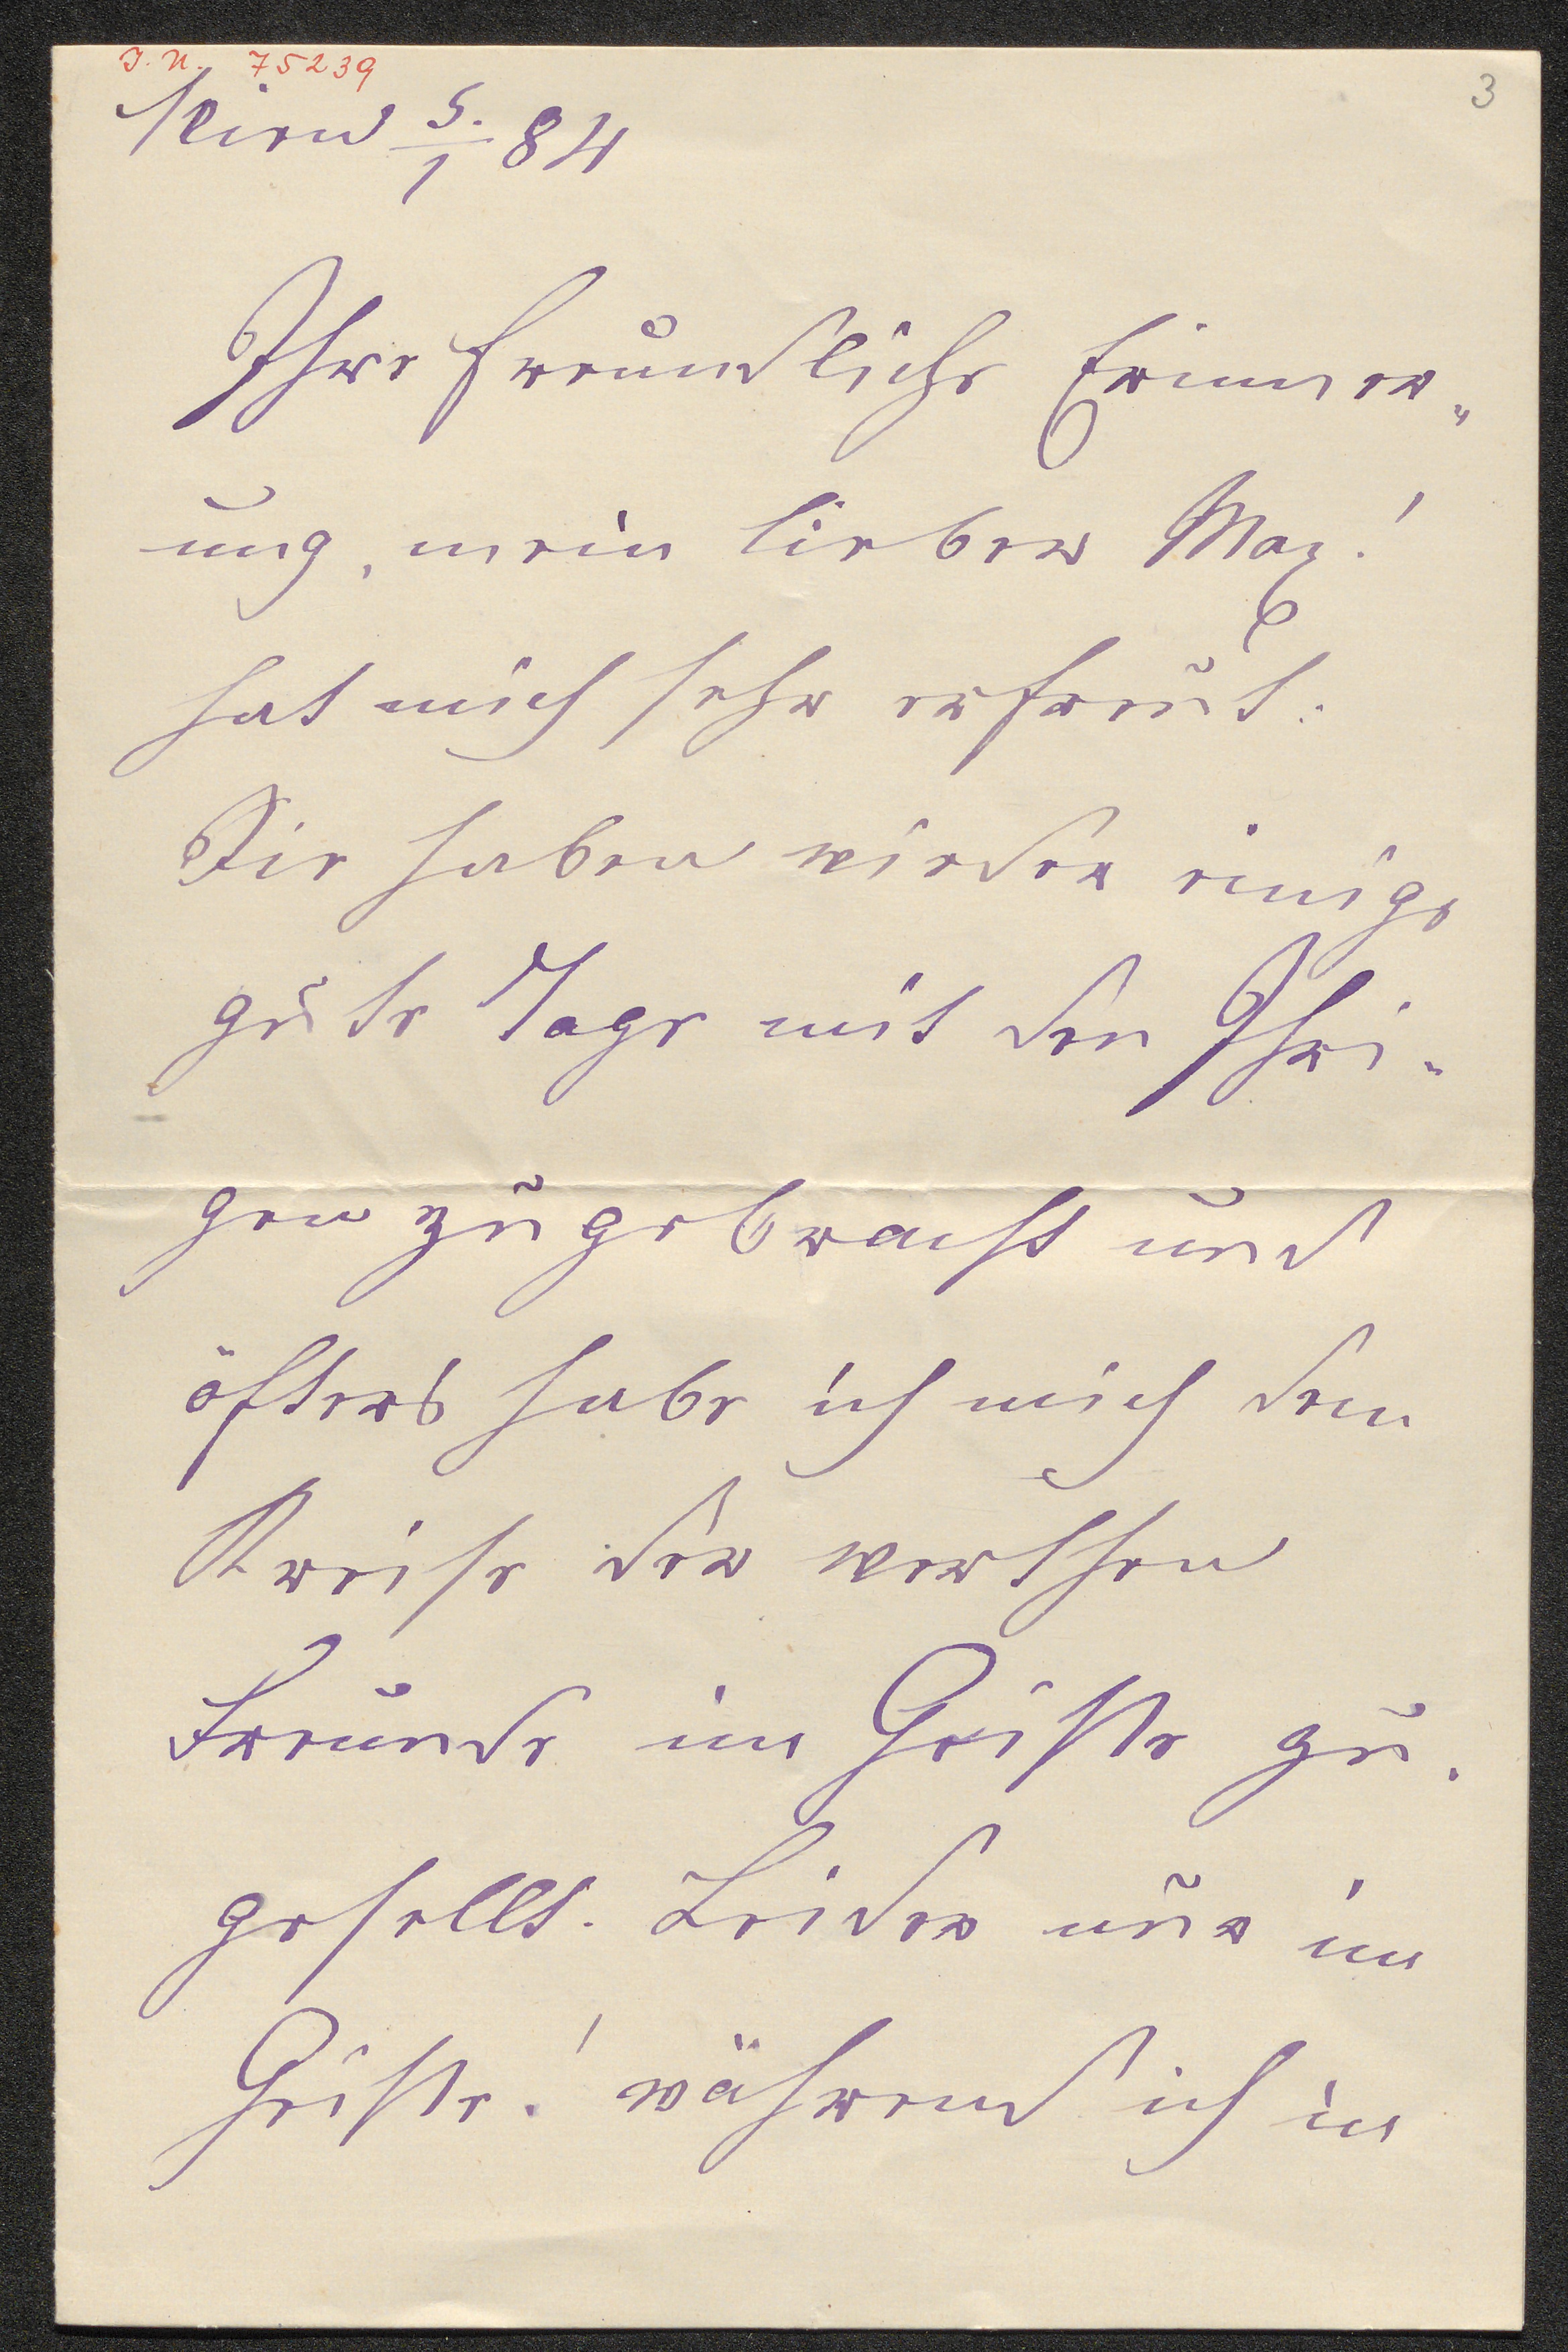 J. N. 75239
3
Wien 5./1 84
Ihre freundliche Erinner„
ung, mein lieber Max!
hat mich sehr erfreut.
Sie haben wieder einige
gute Tage mit den Ihri„
gen zugebracht und
öfters habe ich mich dem
Kreise der werthen
Freunde im Geiste zu„
gesellt. Leider nur im
Geiste! während ich in